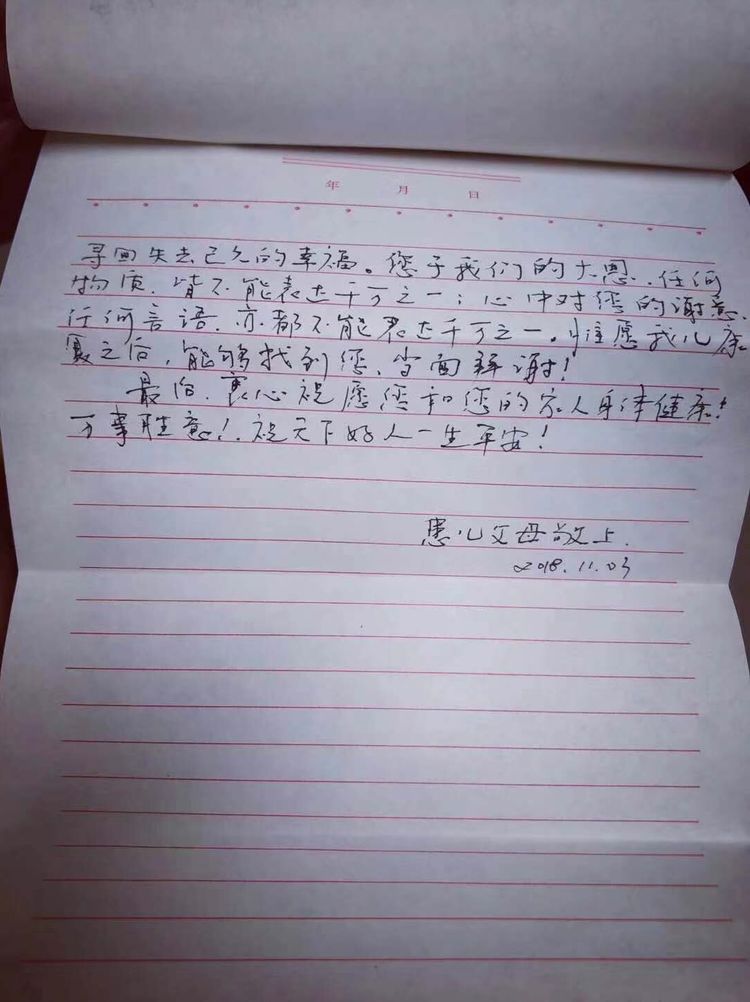 年 月 日
寻回失去已久的幸福。您于我们的大恩、任何
物质、皆不能表达千万之一；心中对您的谢意、
任何言语、亦都不能表达千万之一。惟愿我儿康
复之后，能够找到您、当面拜谢！
最后、衷心祝愿您和您的家人身体健康！
万事胜意！祝天下好人一生平安！
患儿父母敬上.
2018.11.03